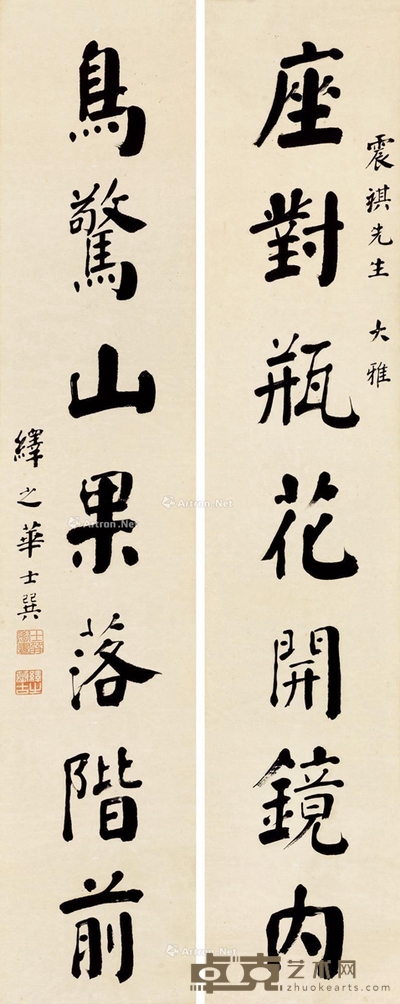 震祺先生 大雅
座對瓶花開鏡內
鳥驚山果落階前
繹之華士巽
Artron.Net
Artron.Net
Artron.Net
Artron.Net
卓克艺术网
zhuokearts.com